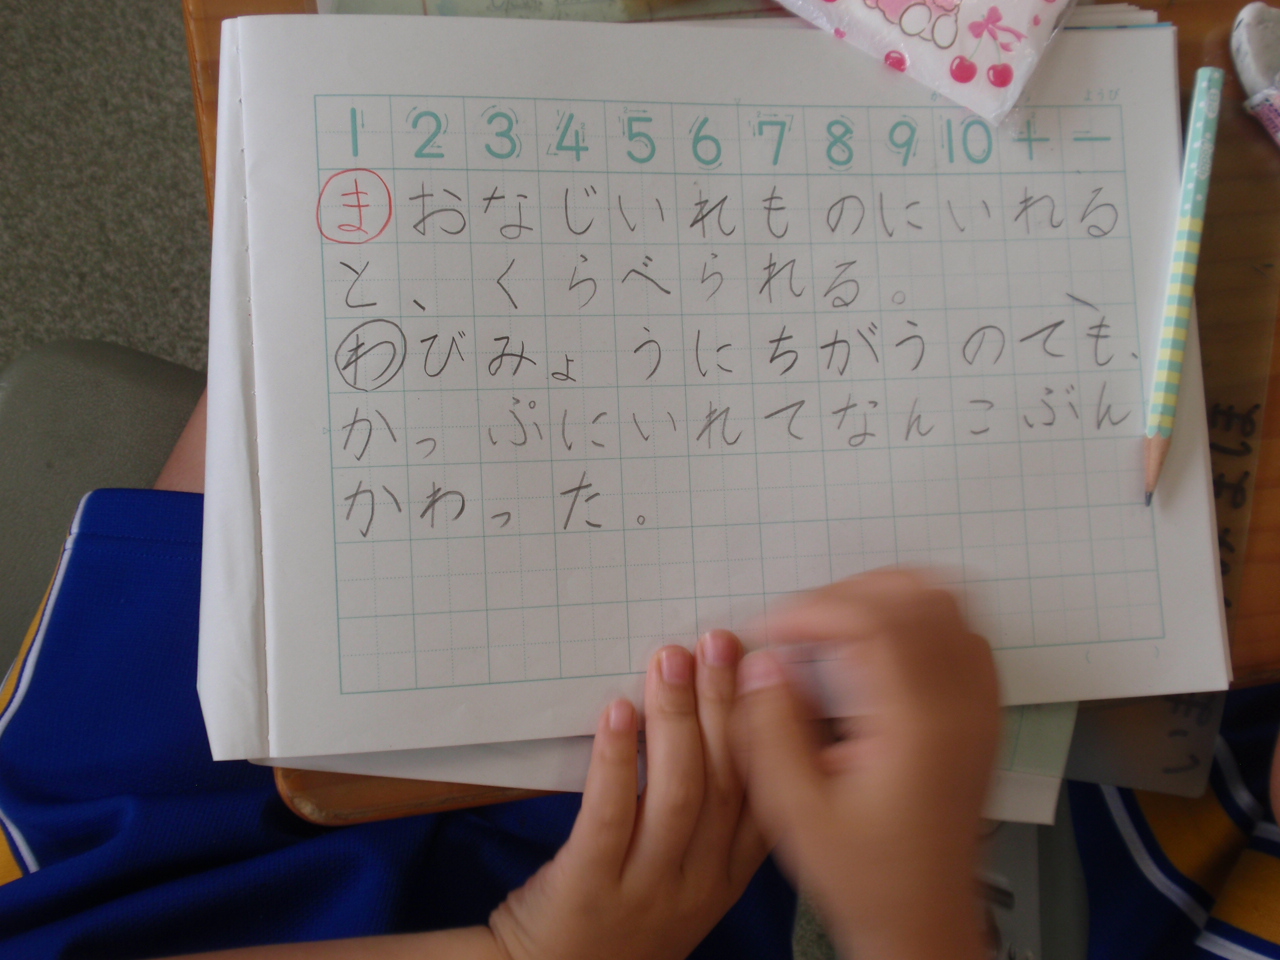 1 2 3 4 5 6 7 8 9 10 + −
ようび
まおなじいれものにいれる
と、くらべられる。
わびみょうにちがうのても、
かっぷにいれてなんこぶん
かわった。